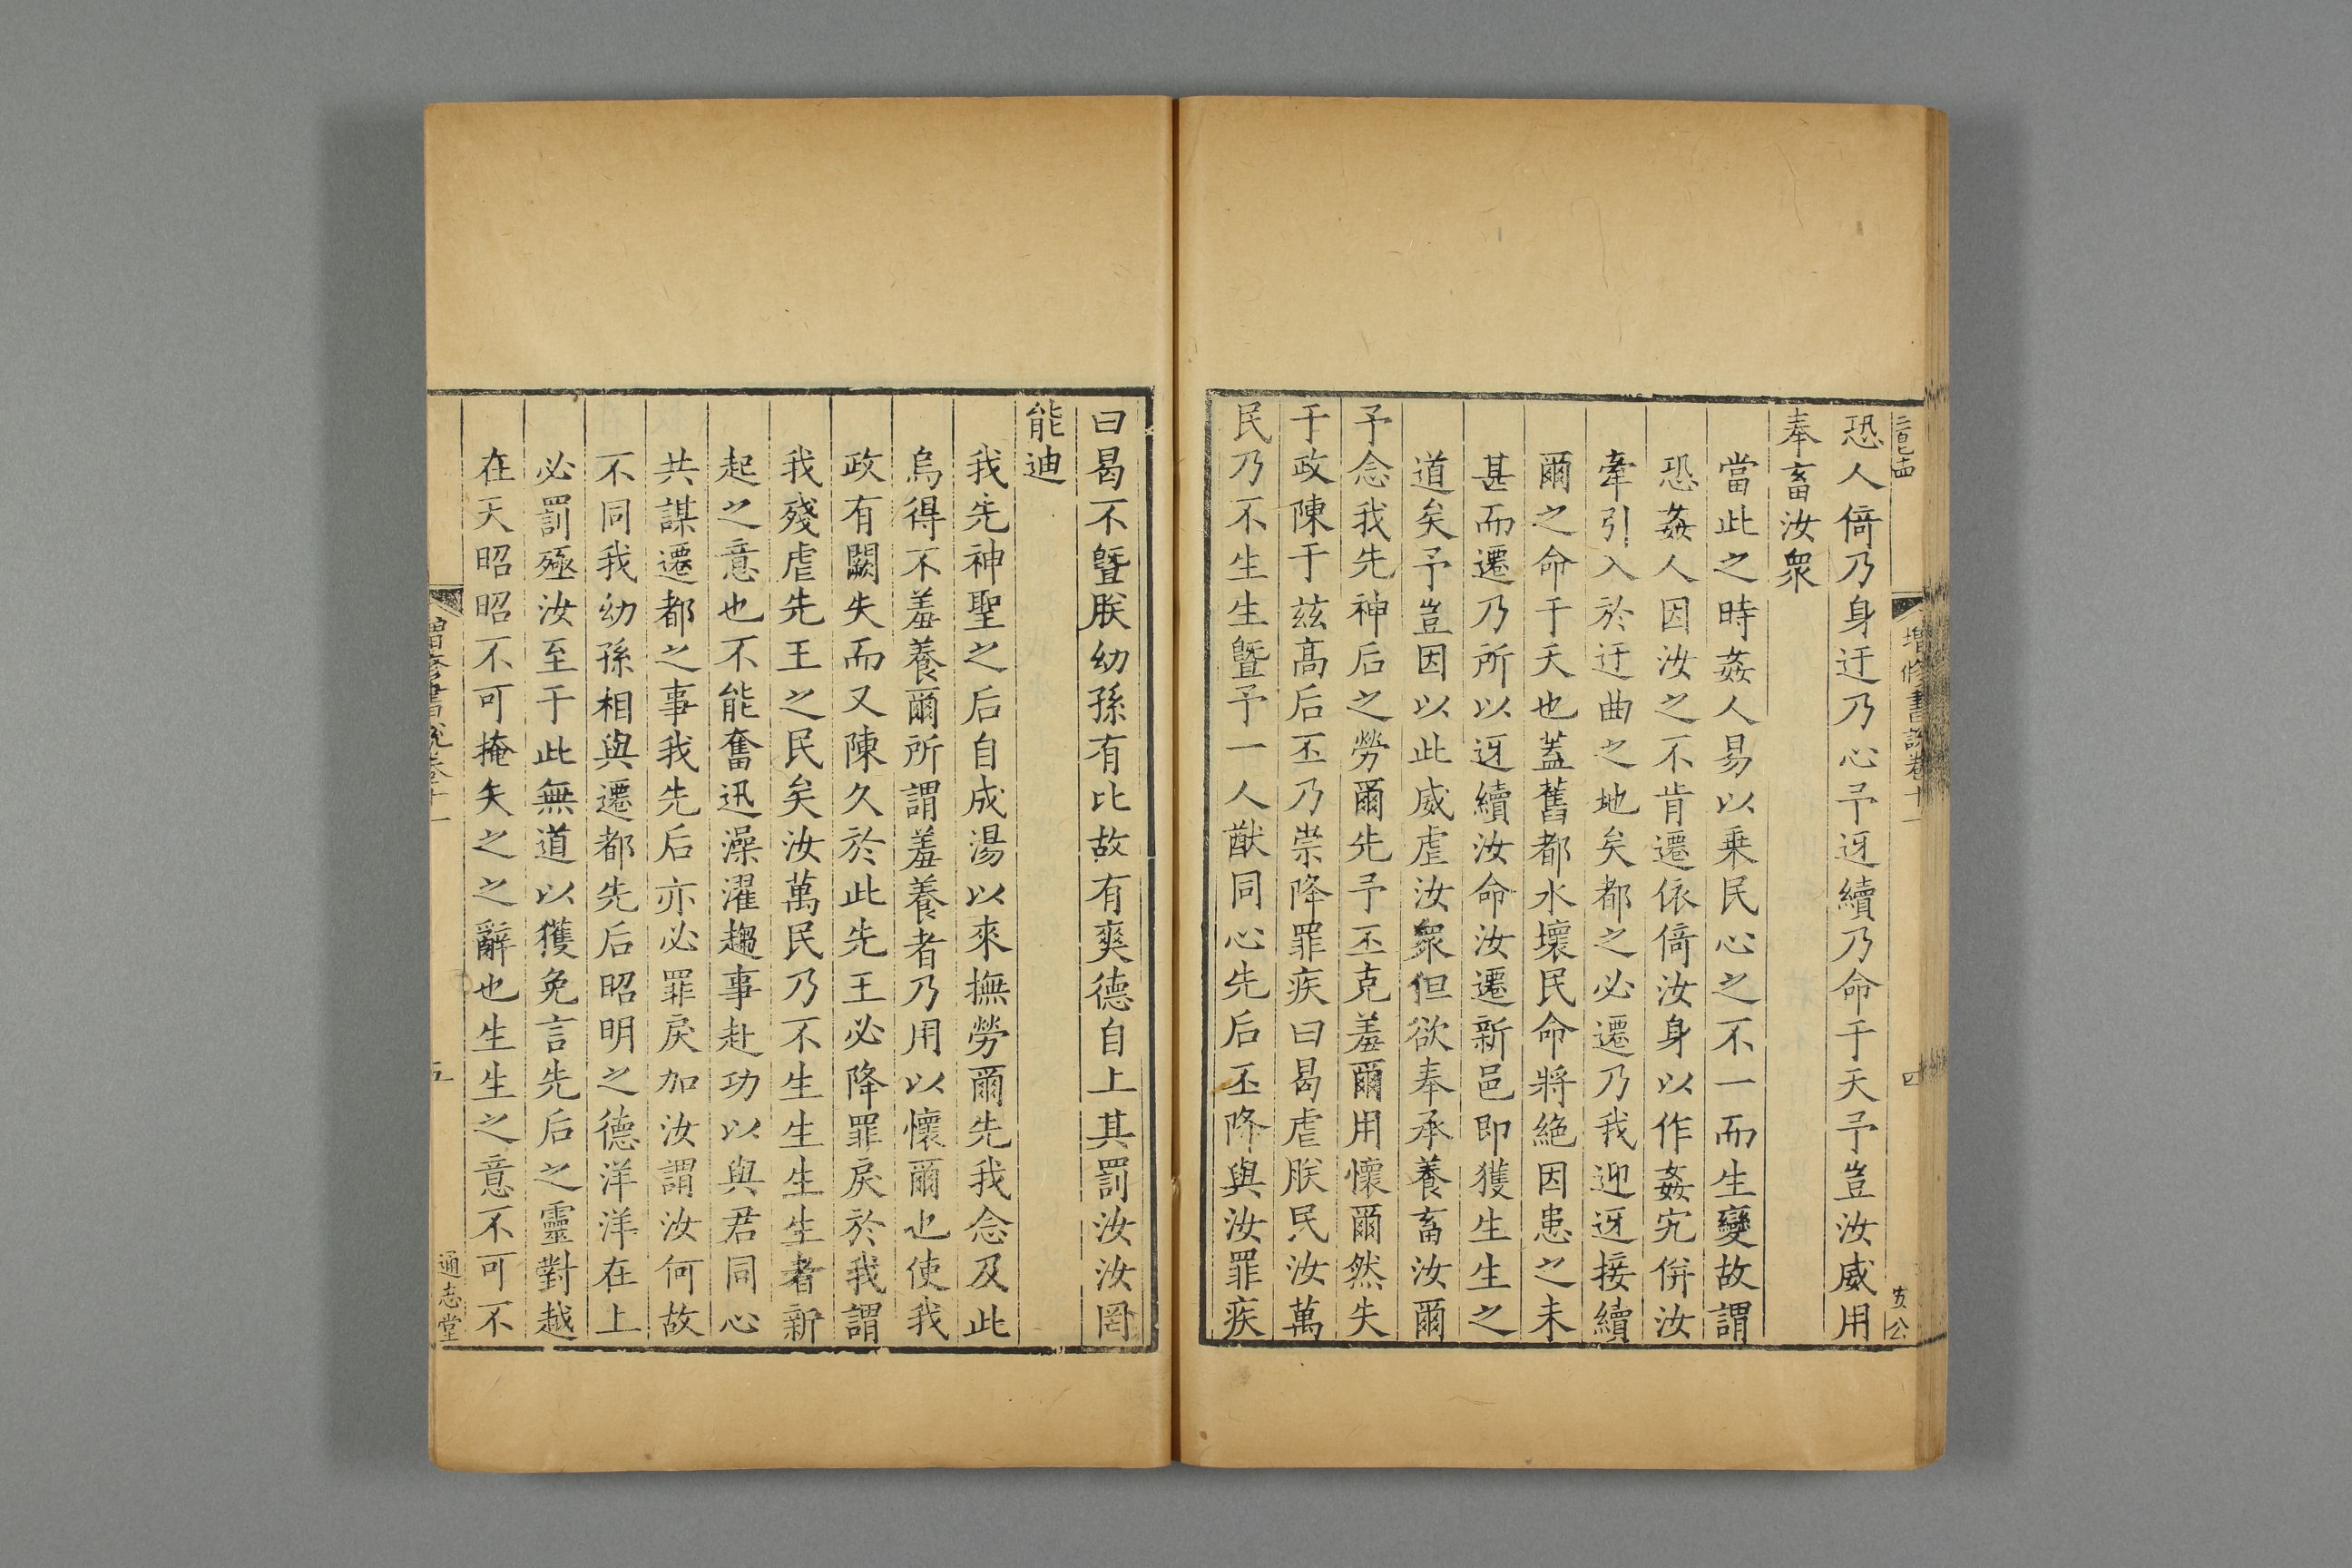 恐人倚乃身迂乃心予迓續乃命于天予豈汝威用
奉畜汝衆
當此之時姦人易以乗民心之不一而生變故謂
恐姦人因汝之不肯遷依倚汝身以作姦宄併汝
牽引入於迂曲之地矣都之必遷乃我迎迓接續
爾之命于天也蓋舊都水壞民命將絶因患之未
甚而遷乃所以迓續汝命汝遷新邑即獲生生之
道矣予豈因以此威虐汝衆但欲奉承養畜汝爾
予念我先神后之勞爾先予丕克羞爾用懷爾然失
于政陳于兹高后丕乃崇降罪疾曰曷虐朕民汝萬
民乃不生生曁予一人猷同心先后丕降與汝罪疾
增修書說卷十一
四
曰曷不曁朕幼孫有比故有爽德自上其罰汝汝罔
能迪
我先神聖之后自成湯以來撫勞爾先我念及此
烏得不羞養爾所謂羞養者乃用以懷爾也使我
政有闕失而又陳久於此先王必降罪戾於我謂
我殘虐先王之民矣汝萬民乃不生生生生者新
起之意也不能奮迅澡濯趨事赴功以與君同心
共謀遷都之事我先后亦必罪戾加汝謂汝何故
不同我幼孫相與遷都先后昭明之德洋洋在上
必罰殛汝至于此無道以獲免言先后之靈對越
在天昭昭不可掩矣之之辭也生生之意不可不
增修書說卷十一
五
通志堂